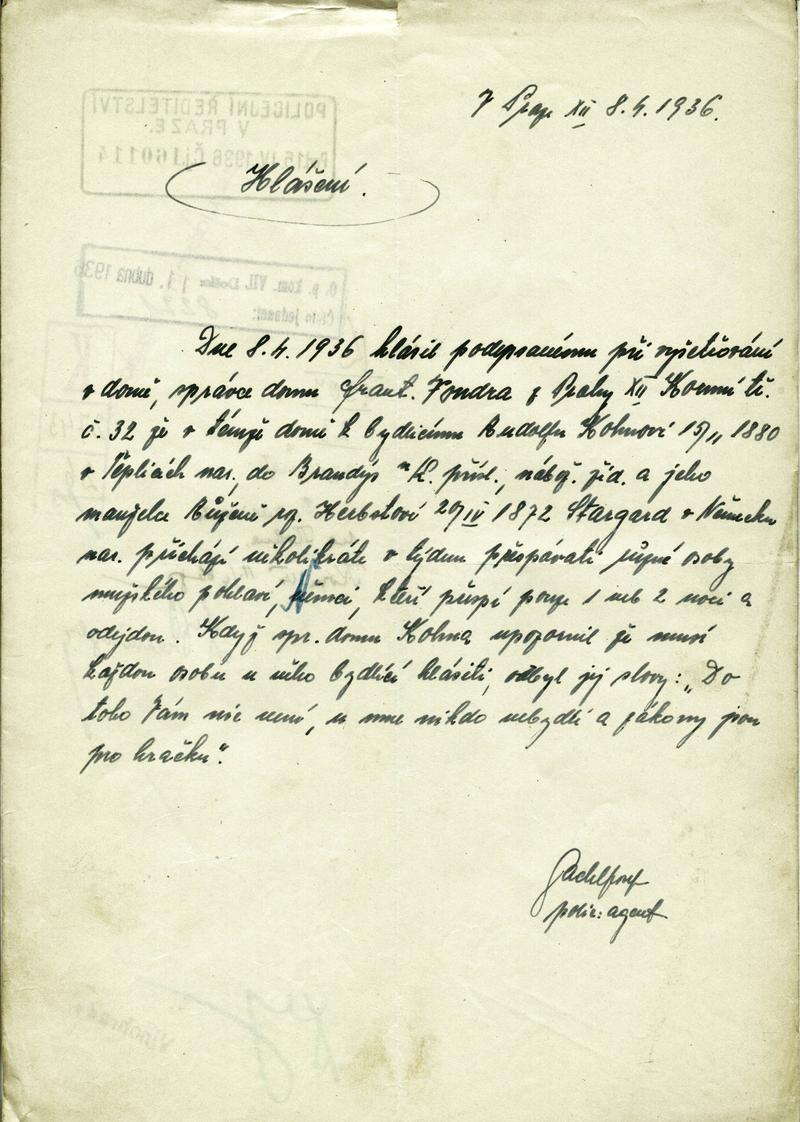 V Praze XII 8.4.1936.
Hlášení.
Dne 8.4.1936 hlásil podepsanému při vyšetřování
v domě, správce domu Frant. Vondra z Prahy XII Korunní tř.
č. 32 že v témže domě k bydlícímu Rudolfu Kohnovi 15/11 1880
v Teplicích nar., do Brandýs n. L. přísl., nábož. žid. a jeho
manželce Růženě roz. Herbstové 20/IV 1872 Stargard v Německu
nar. přichází několikráte v týdnu přespávati různé osoby
mužského pohlaví, Němci, kteří přespí pouze 1 neb 2 noci a
odejdou. Když spr. domu Kohna upozornil že musí
každou osobu u něho bydlící hlásiti, odbyl jej slovy: „Do
toho Vám nic není, u mne nikdo nebydlí a zákony jsou
pro hračku".
polic. agent
POLICEJNÍ ŘEDITELSTVÍ
V PRAZE
16. IV. 1936 Č.j. 160114
O. p. kom. VII. Došlo: 11. dubna 1936
Číslo jednací:
Vinohrady